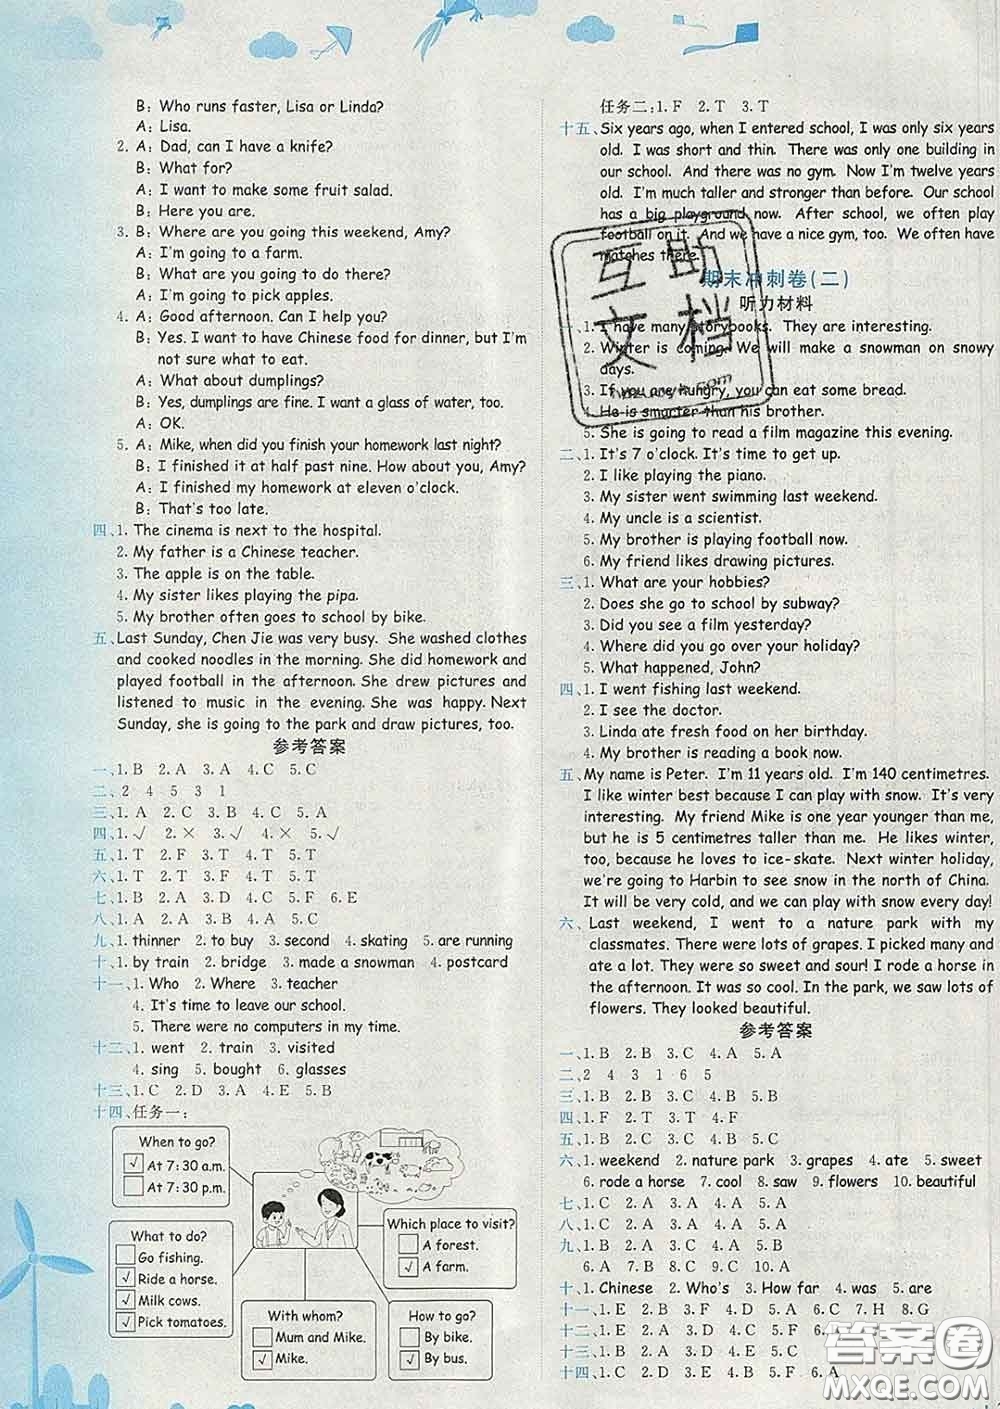 B: Who runs faster, Lisa or Linda?
A: Lisa.
2. A: Dad, can I have a knife?
B: What for?
A: I want to make some fruit salad.
B: Here you are.
3. B: Where are you going this weekend, Amy?
A: I'm going to a farm.
B: What are you going to do there?
A: I'm going to pick apples.
4. A: Good afternoon. Can I help you?
B: Yes. I want to have Chinese food for dinner, but I'm
not sure what to eat.
A: What about dumplings?
B: Yes, dumplings are fine. I want a glass of water, too.
A: OK.
5. A: Mike, when did you finish your homework last night?
B: I finished it at half past nine. How about you, Amy?
A: I finished my homework at eleven o'clock.
B: That's too late.
四、1. The cinema is next to the hospital.
2. My father is a Chinese teacher.
3. The apple is on the table.
4. My sister likes playing the pipa.
5. My brother often goes to school by bike.
五、Last Sunday, Chen Jie was very busy. She washed clothes
and cooked noodles in the morning. She did homework and
played football in the afternoon. She drew pictures and
listened to music in the evening. She was happy. Next
Sunday, she is going to the park and draw pictures, too.
参考答案
一、1. B 2. A 3. A 4. C 5. C
二、2 4 5 3 1
三、1. A 2. C 3. B 4. C 5. A
四、1. √ 2. × 3. √ 4. × 5. √
五、1. T 2. F 3. T 4. T 5. T
六、1. T 2. T 3. F 4. T 5. T
七、1. B 2. C 3. D 4. A 5. F 6. E
八、1. A 2. A 3. C 4. C 5. A
九、1. thinner 2. to buy 3. second 4. skating 5. are running
十、1. by train 2. bridge 3. made a snowman 4. postcard
十一、1. Who 2. Where 3. teacher
4. It's time to leave our school.
5. There were no computers in my time.
十二、1. went 2. train 3. visited
4. sing 5. bought 6. glasses
十三、1. C 2. D 3. A 4. E 5. B
十四、任务一:
When to go?
√ At 7:30 a.m.
At 7:30 p.m.
What to do?
Go fishing.
√ Ride a horse.
√ Milk cows.
√ Pick tomatoes.
Which place to visit?
A forest.
√ A farm.
With whom?
Mum and Mike.
√ Mike.
How to go?
By bike.
√ By bus.
任务二:1. F 2. T 3. T
十五、Six years ago, when I entered school, I was only six years
old. I was short and thin. There was only one building in
our school. And there was no gym. Now I'm twelve years
old. I'm much taller and stronger than before. Our school
has a big playground now. After school, we often play
football on it. And we have a nice gym, too. We often have
matches there.
期末冲刺卷(二)
听力材料
一、1. I have many storybooks. They are interesting.
2. Winter is coming. We will make a snowman on snowy
days.
3. If you are hungry, you can eat some bread.
4. He is smarter than his brother.
5. She is going to read a film magazine this evening.
二、1. It's 7 o'clock. It's time to get up.
2. I like playing the piano.
3. My sister went swimming last weekend.
4. My uncle is a scientist.
5. My brother is playing football now.
6. My friend likes drawing pictures.
三、1. What are your hobbies?
2. Does she go to school by subway?
3. Did you see a film yesterday?
4. Where did you go over your holiday?
5. What happened, John?
四、1. I went fishing last weekend.
2. I see the doctor.
3. Linda ate fresh food on her birthday.
4. My brother is reading a book now.
五、My name is Peter. I'm 11 years old. I'm 140 centimetres.
I like winter best because I can play with snow. It's very
interesting. My friend Mike is one year younger than me,
but he is 5 centimetres taller than me. He likes winter,
too, because he loves to ice-skate. Next winter holiday,
we're going to Harbin to see snow in the north of China.
It will be very cold, and we can play with snow every day!
六、Last weekend, I went to a nature park with my
classmates. There were lots of grapes. I picked many and
ate a lot. They were so sweet and sour! I rode a horse in
the afternoon. It was so cool. In the park, we saw lots of
flowers. They looked beautiful.
参考答案
一、1. B 2. B 3. C 4. A 5. A
二、2 4 3 1 6 5
三、1. B 2. B 3. C 4. A 5. B
四、1. F 2. T 3. T 4. F
五、1. B 2. C 3. B 4. A 5. C
六、1. weekend 2. nature park 3. grapes 4. ate 5. sweet
6. rode a horse 7. cool 8. saw 9. flowers 10. beautiful
七、1. C 2. A 3. A 4. A 5. A
八、1. C 2. C 3. A 4. A 5. A
九、1. B 2. C 3. A 4. A 5. B
6. A 7. A 8. B 9. C 10. A
十、1. Chinese 2. Who's 3. How far 4. was 5. are
十一、1. E 2. B 3. D 4. A 5. C 6. F 7. H 8. G
十二、1. E 2. A 3. D 4. C 5. B
十三、1. E 2. B 3. D 4. C 5. A
十四、1. C 2. E 3. D 4. B 5. F 6. A
互助
文档
答案圈
MXQE.COM